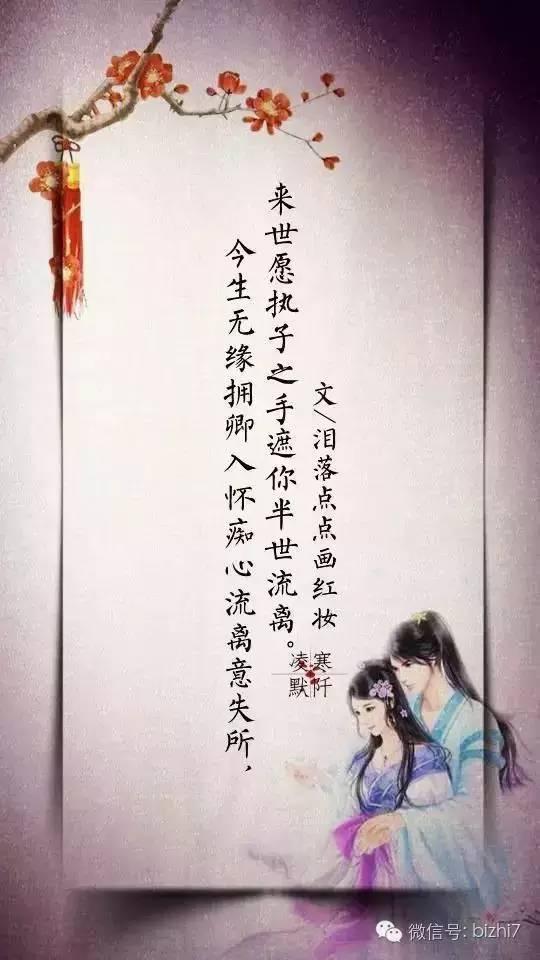 今生无缘拥卿入怀痴心流离意失所，
来世愿执子之手遮你半世流离。
文/泪落点点画红妆
凌寒
默阡
微信号: bizhi7